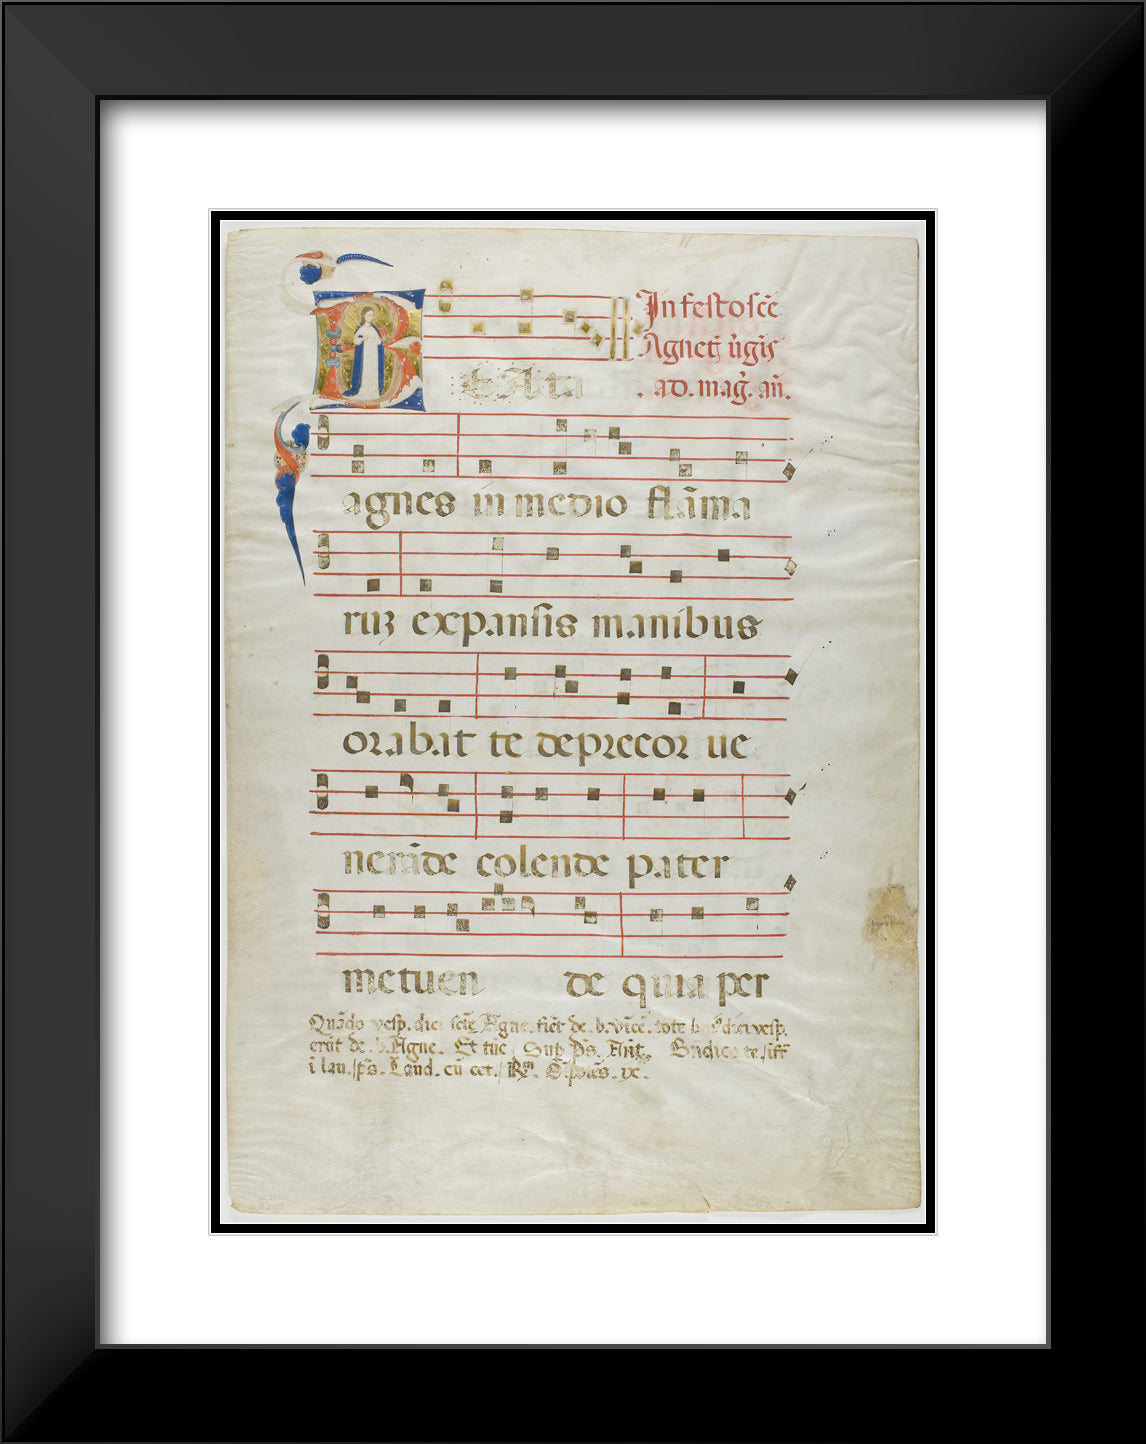 BEAta
In festo sc̄e
Agnetꝭ ūgis
. ad. mag̃. añ.
agnes in medio flāma
ruꝫ expansis manibus
orabat te deprecor ue
nerāde colende pater
metuen de quia per
Quādo vesp. diei sc̄e Agne. fiēt de. b. vīcē. tote diei vesp.
erūt de. b. Agne. Et tūc Sup p̄s. Añt.
ī lau. p̄s. Laud. cū cet.